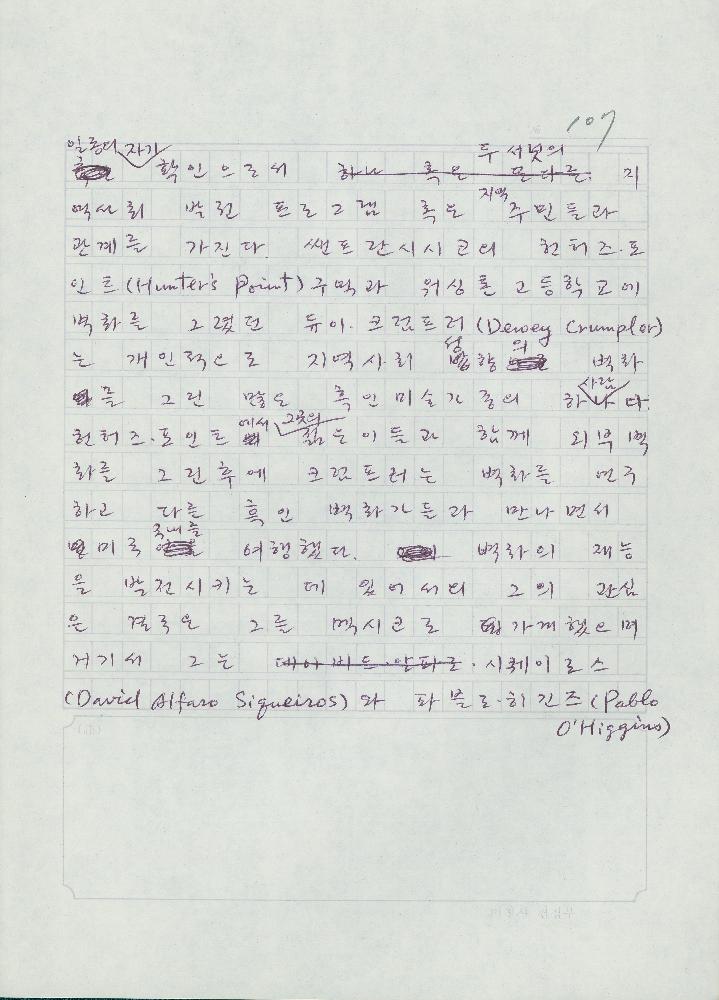 107
일종의 자기 두 서넛의
확인으로서 하나 혹은 또다른 지
역사회 발전 프로그램 혹은 지역 주민들과
관계를 가진다. 쌘프란시시코의 헌터즈·포
인트(Hunter's Point)구역과 워싱톤 고등학교에
벽화를 그렸던 듀이·크럼프러(Dewey Crumplor)
는 개인적으로 지역사회 성향의 벽화
를 그린 많은 흑인미술가중의 하나다. 사람
헌터즈·포인트에서 그곳의 젊은이들과 함께 외부벽
화를 그린후에 크럼프러는 벽화를 연구
하고 다른 흑인 벽화가들과 만나면서
미국 국내를 여행했다. 벽화의 재능
을 발전시키는 데 있어서의 그의 관심
은 결국은 그를 멕시코로 가게했으며
거기서 그는 데이비드·알파로·시퀘이로스
(David Alfaro Siqueiros)와 파블로·히긴즈(Pablo
O'Higgins)